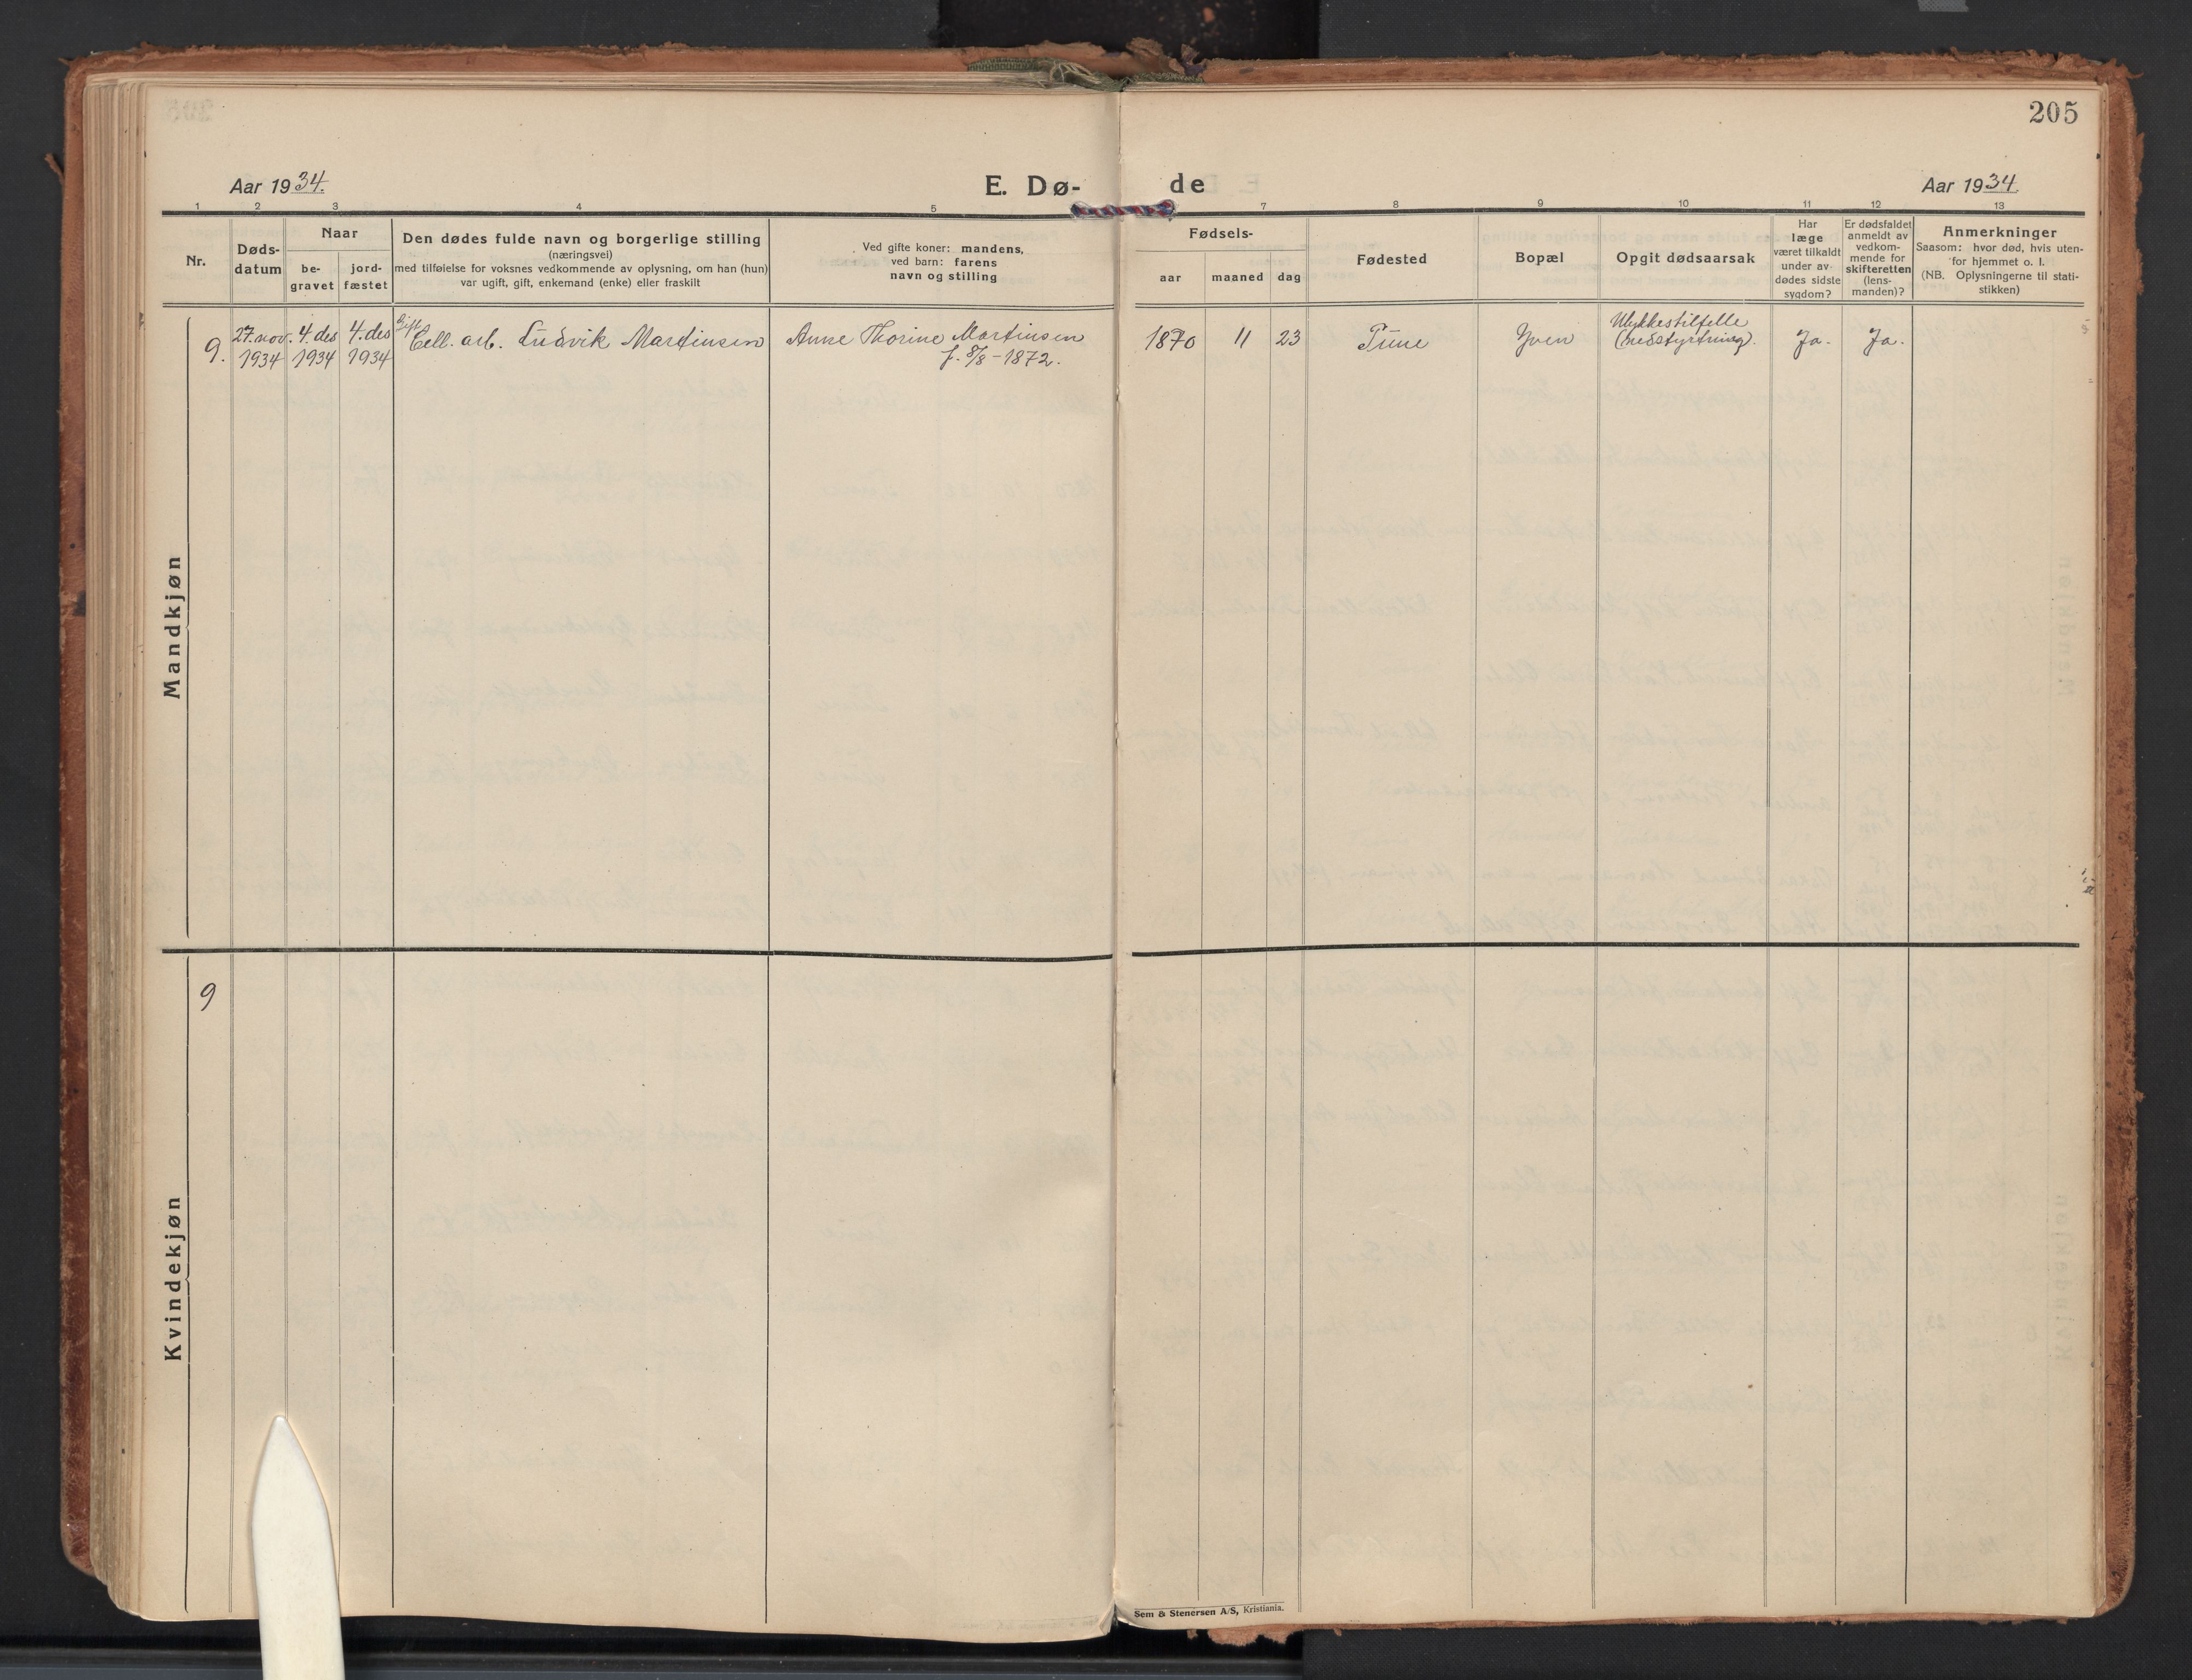 205
Aar 1934.
E. Dø-
de
Aar 1934.
1 2 3 4 5 7 8 9 10 11 12 13
Nr.
Døds-
datum
Naar
be-
gravet
jord-
fæstet
Den dødes fulde navn og borgerlige stilling
(næringsvei)
med tilføielse for voksnes vedkommende av oplysning, om han (hun)
var ugift, gift, enkemand (enke) eller fraskilt
Ved gifte koner: mandens,
ved barn: farens
navn og stilling
Fødsels-
aar
maaned
dag
Fødested
Bopæl
Opgit dødsaarsak
Har
læge
været tilkaldt
under av-
dødes sidste
sygdom?
Er dødsfaldet
anmeldt av
vedkom-
mende for
skifteretten
(lens-
manden)?
Anmerkninger
Saasom: hvor død, hvis uten-
for hjemmet o. l.
(NB. Oplysningerne til stati-
stikken)
Mandkjøn
9.
27. nov.
1934
4. des
1934
4. des
1934
Gift
Cell. arb. Ludvik Martinsen
Anne Thorine Martinsen
f. 8/8 - 1872.
1870
11
23
Tune
Yven
Ulykkestilfelle
(nedstyrtning).
Ja.
Ja.
Kvindekjøn
9
Sem & Stenersen A/S, Kristiania.